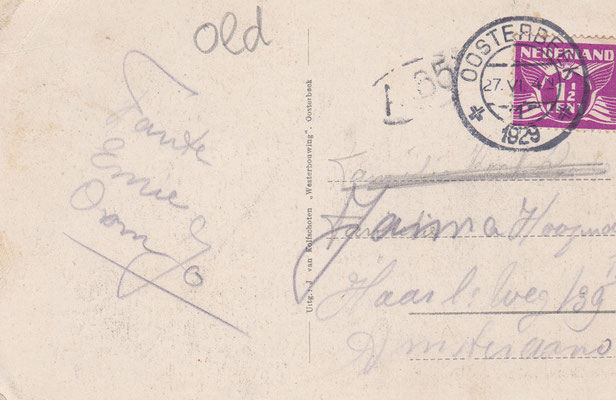 old
Tante
Emie &
Oom Jo
Uitg.: J. van Kolfschoten „Westerbouwing", Oosterbeek
65
OOSTERBEEK
27.VI
1929
NEDERLAND
1½
CENT
Jaima Hoogend
Haarl.weg 139
Amsterdam